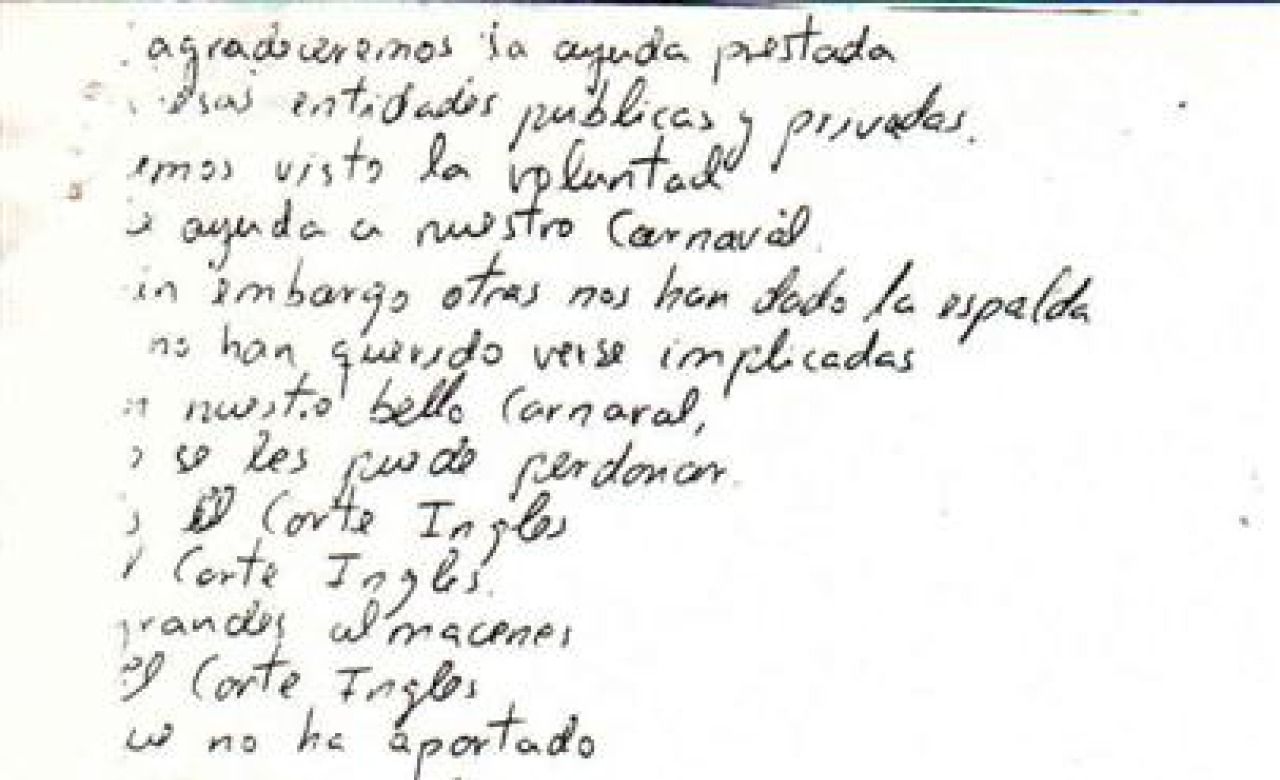 agradeceremos la ayuda prestada
esas entidades públicas y privadas.
emos visto la voluntad
e ayuda a nuestro Carnaval.
in embargo otras nos han dado la espalda
no han querido verse implicadas
n nuestro bello Carnaval,
se les puede perdonar.
s El Corte Ingles
l Corte Ingles.
grandes almacenes
el Corte Ingles
ue no ha aportado